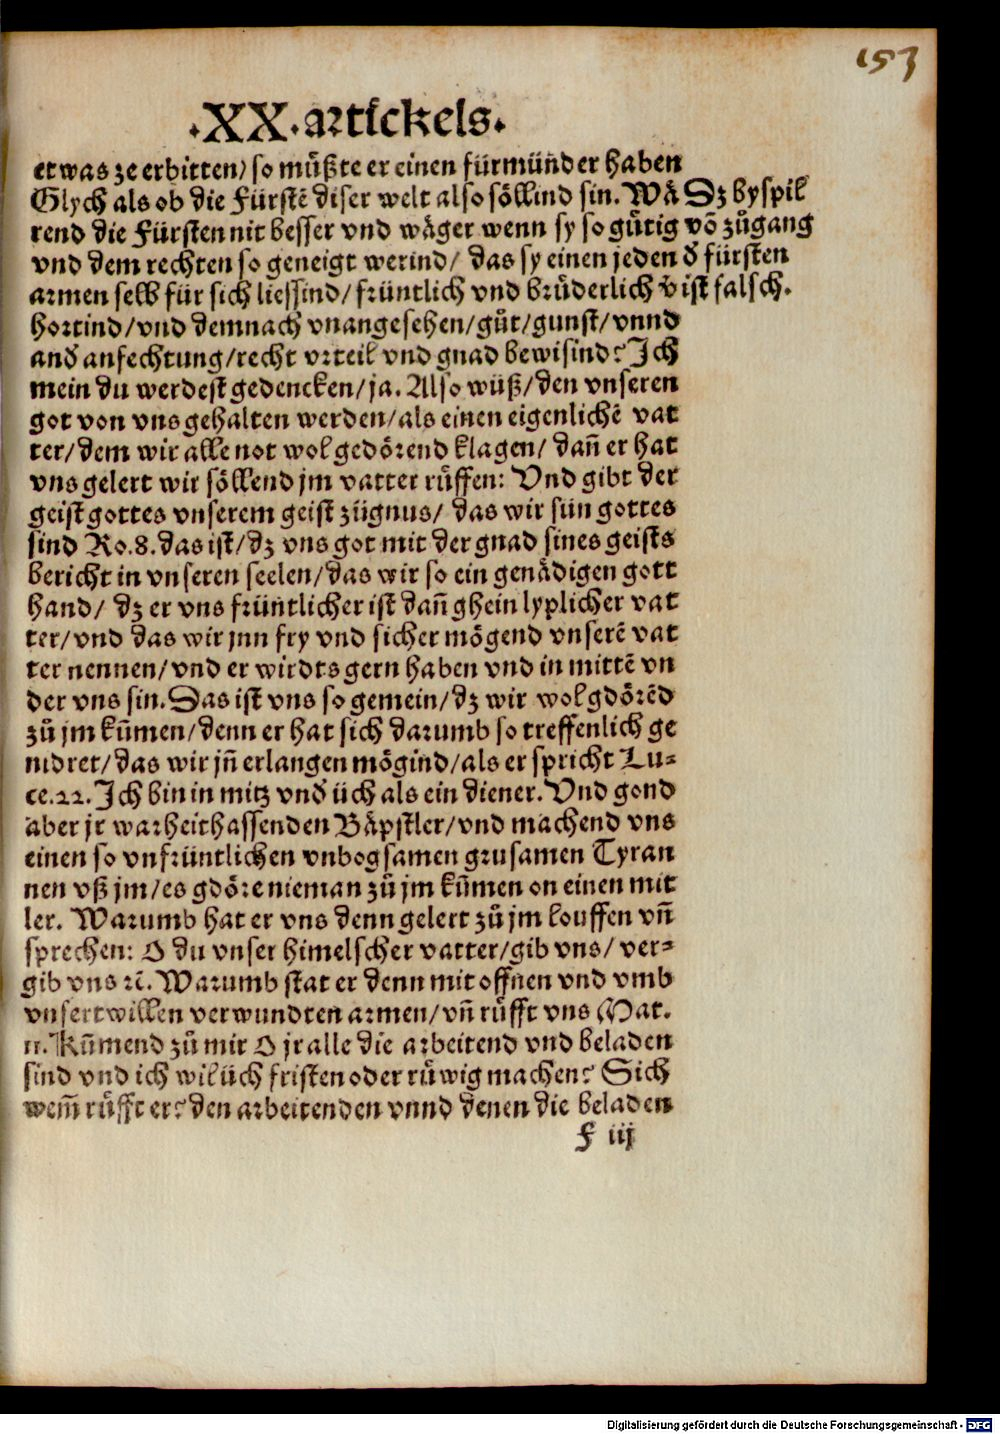 153
.XX.artickels.
etwas ze erbitten/ so můßte er einen fürmünder haben
Glych als ob die Fürstē diser welt also söllind sin. Wä
rend die Fürsten nit besser vnd wäger wenn sy so gůtig
vnd dem rechten so geneigt werind/ das sy einen jeden
armen selb für sich liessind/ früntlich vnd brůderlich v̄
hortind/vnd demnach vnangesehen/gůt/gunst/vnnd
and̕ anfechtung/recht vrteil vnd gnad bewisind? Ich
mein du werdest gedencken/ja. Also wüß/den vnseren
got von vns gehalten werden/als einen eigenlichē vat
ter/dem wir alle not wol gedörend klagen/ dañ er hat
vns gelert wir söllend jm vatter růffen: Vnd gibt der
geist gottes vnserem geist zügnus/ das wir sün gottes
sind Ro.8.das ist/dz vns got mit der gnad sines geists
bericht in vnseren seelen/das wir so ein genädigen gott
hand/ dz er vns früntlicher ist dañ ghein lyplicher vat
ter/vnd das wir jnn fry vnd sicher mögend vnserē vat
ter nennen/vnd er wirdts gern haben vnd in mittē vn
der vns sin. Das ist vns so gemein/dz wir wol gdörēd
zů jm kūmen/denn er hat sich darumb so treffenlich ge
nidret/das wir jñ erlangen mögind/als er spricht Lu=
ce.22. Ich bin in mitz vnd̕ üch als ein diener. Vnd gond
aber jr warheithassenden Bäpstler/vnd machend vns
einen so vnfrüntlichen vnbogsamen grusamen Tyran
nen vß jm/es gdöre nieman zů jm kūmen on einen mit
ler. Warumb hat er vns denn gelert zů jm louffen vñ
sprechen: O du vnser himelscher vatter/gib vns/ ver=
gib vns ꝛc̄. Warumb stat er denn mit offnen vnd vmb
vnsertwillen verwundten armen/vñ růfft vns Mat.
11. Kūmend zů mir O jr alle die arbeitend vnd beladen
sind vnd ich wil üch fristen oder růwig machen? Sich
wem̄ růfft er? den arbeitenden vnnd denen die beladen
F iij
Dz byspil
võ zůgang
d̕ fürsten
ist falsch.
Digitalisierung gefördert durch die Deutsche Forschungsgemeinschaft - DFG